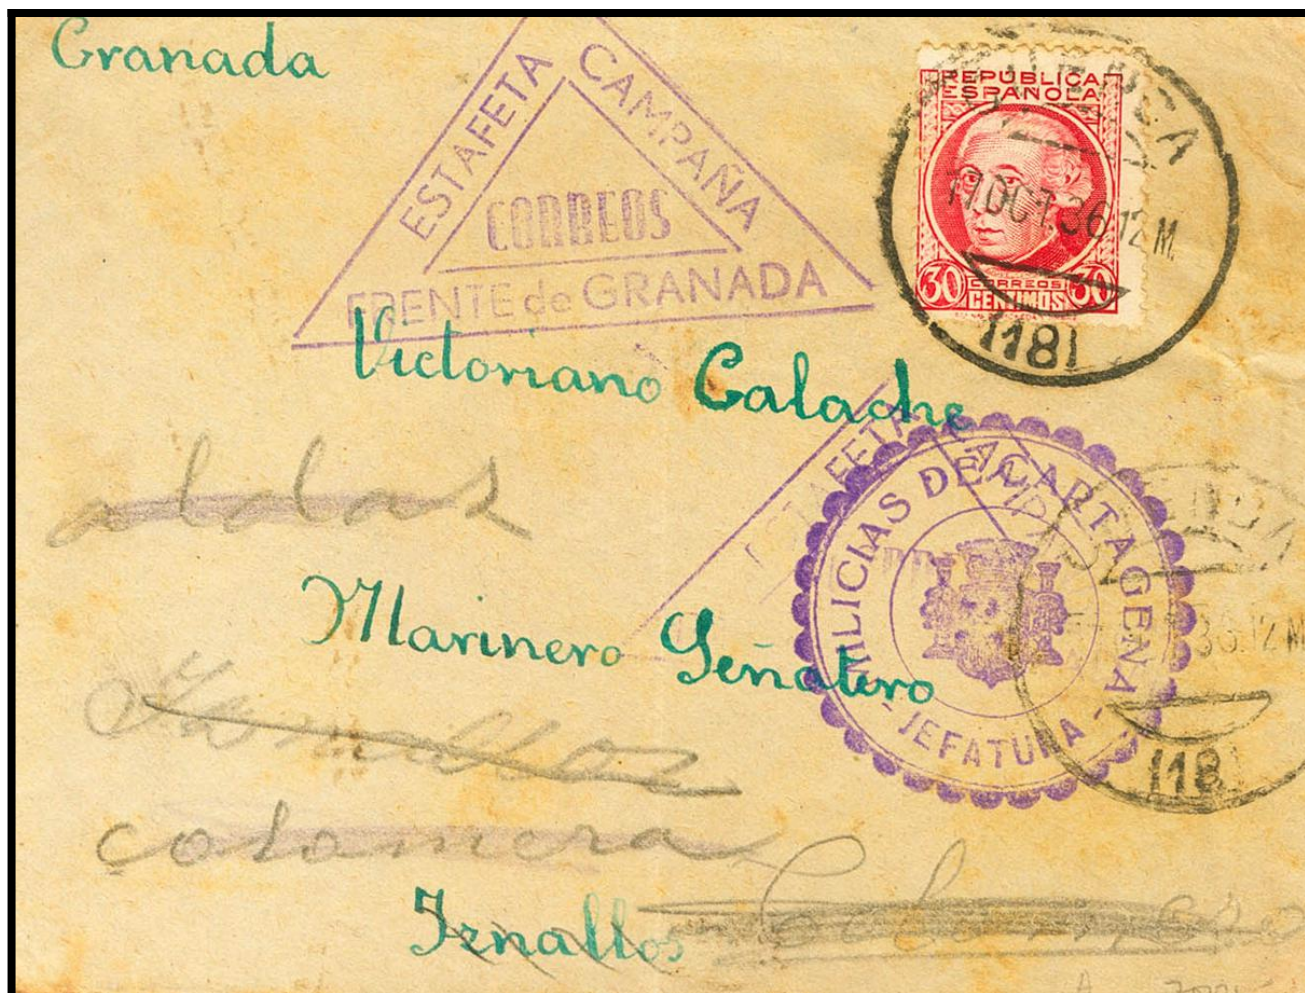 Granada
ESTAFETA CAMPAÑA
CORREOS
FRENTE de GRANADA
REPÚBLICA
ESPAÑOLA
30 CORREOS 30
CENTIMOS
OCT. 36 12 M.
118
Victoriano Calache
ESTAFETA
MILICIAS DE CARTAGENA
- JEFATURA -
36.12 M
118
Marinero Señalero
colomera
Iznallos